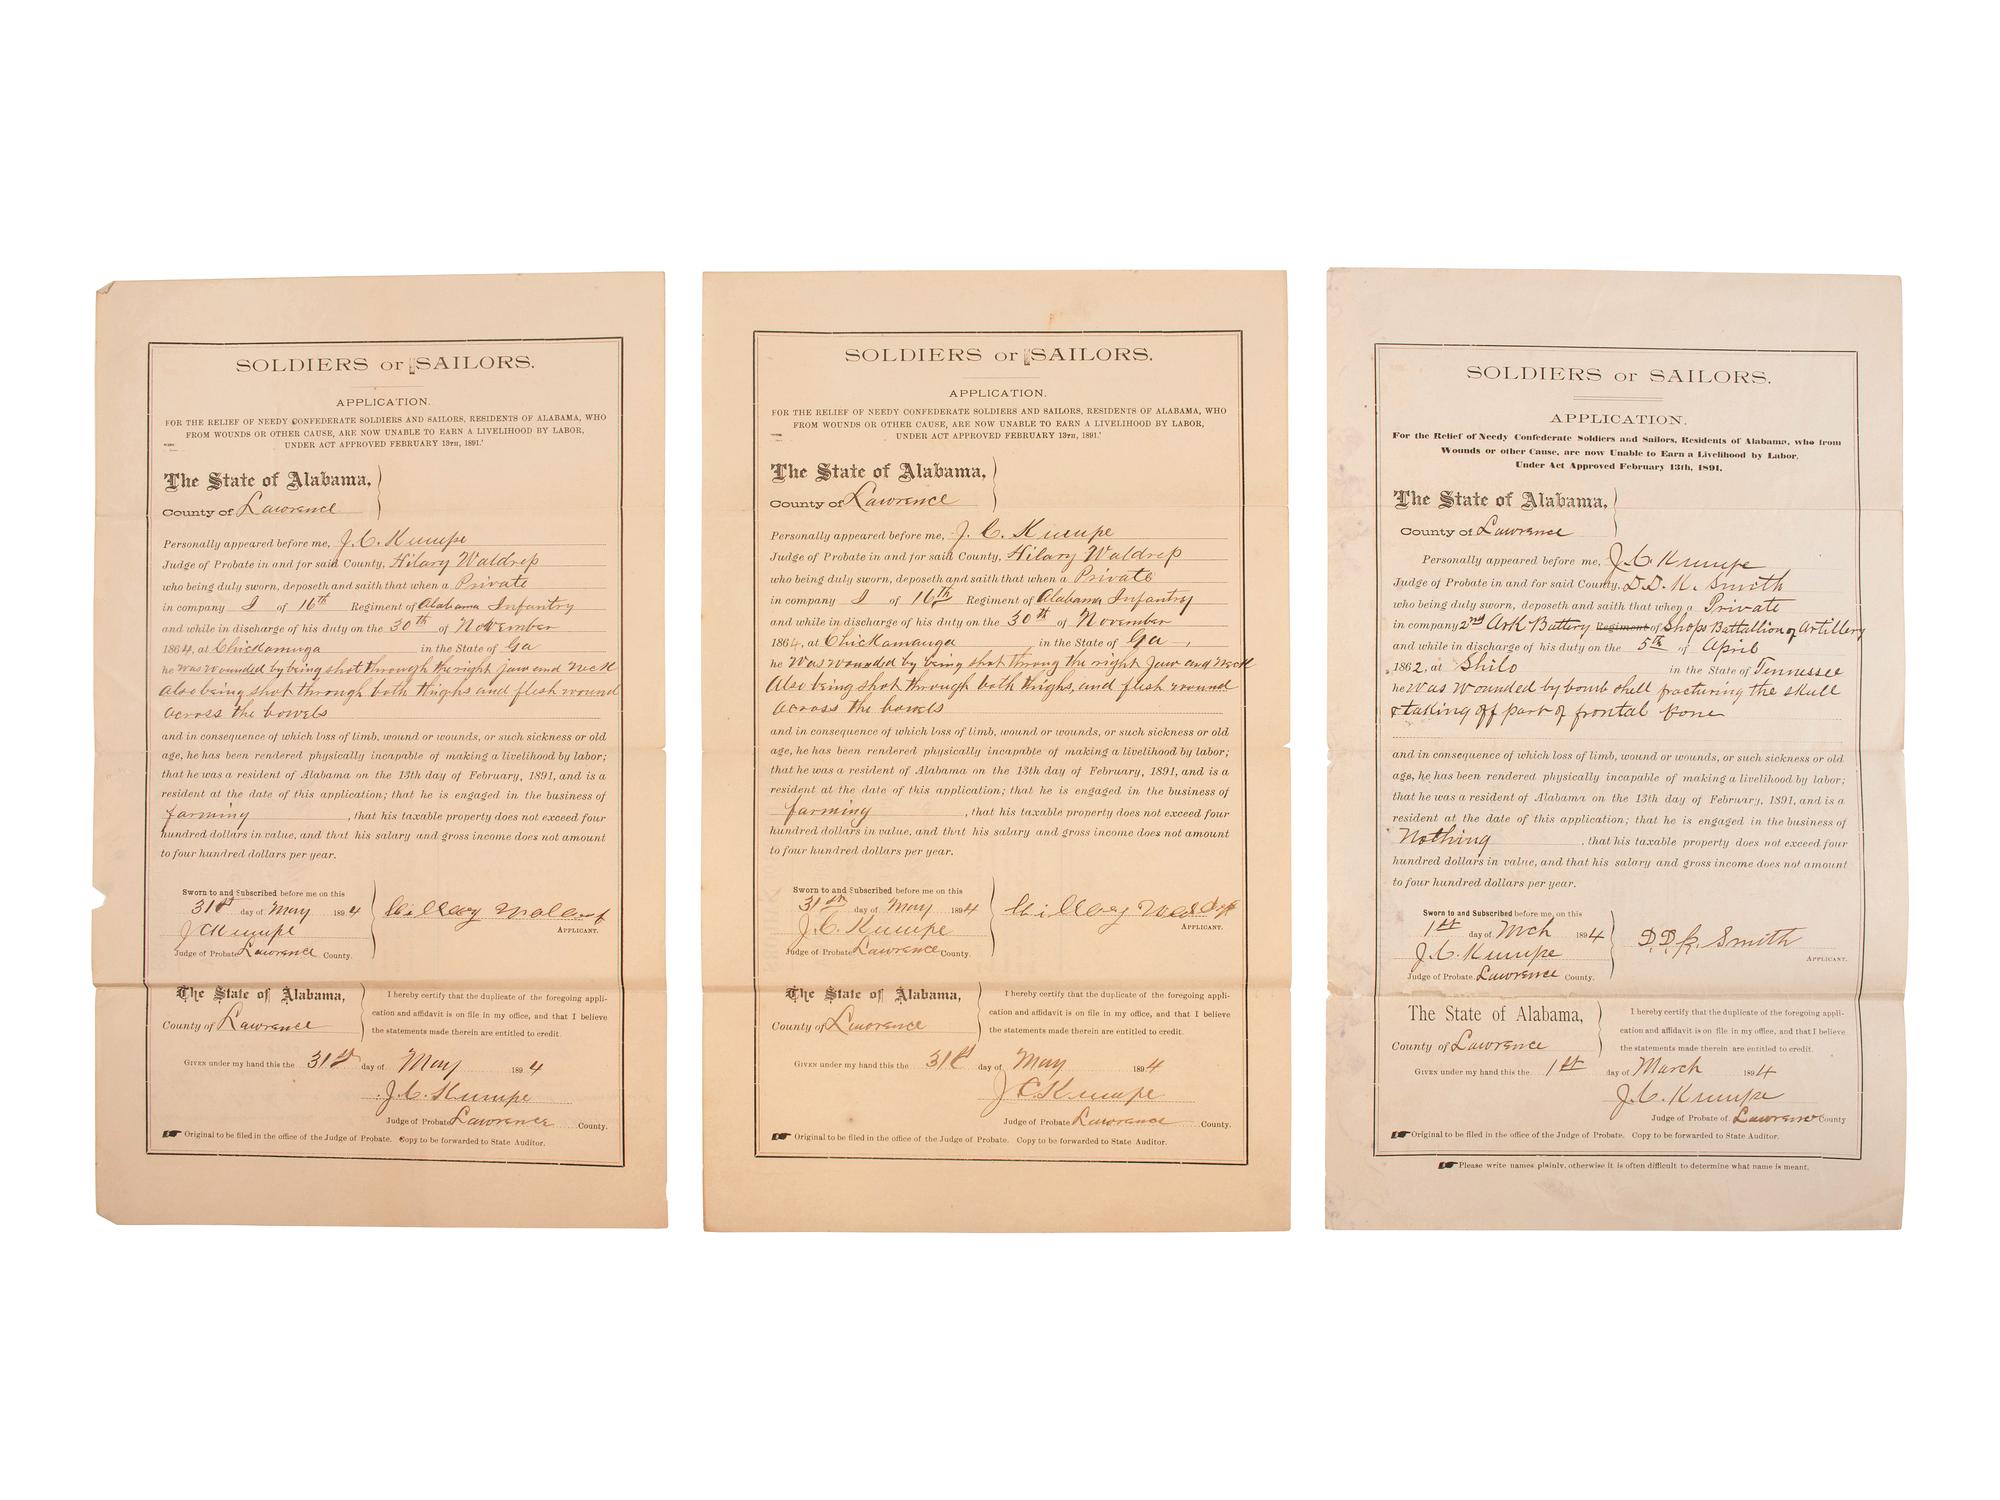 SOLDIERS or SAILORS.
APPLICATION.
FOR THE RELIEF OF NEEDY CONFEDERATE SOLDIERS AND SAILORS, RESIDENTS OF ALABAMA, WHO
FROM WOUNDS OR OTHER CAUSE, ARE NOW UNABLE TO EARN A LIVELIHOOD BY LABOR,
UNDER ACT APPROVED FEBRUARY 13TH, 1891.
The State of Alabama,
County of Lawrence
Personally appeared before me, J. C. Kumpe
Judge of Probate in and for said County, Hilary Waldrep
who being duly sworn, deposeth and saith that when a Private
in company I of 16th Regiment of Alabama Infantry
and while in discharge of his duty on the 30th of November
1864, at Chickamuga in the State of Ga
he was wounded by being shot through the right jaw and neck
also being shot through both thighs and flesh wound
across the bowels
and in consequence of which loss of limb, wound or wounds, or such sickness or old
age, he has been rendered physically incapable of making a livelihood by labor;
that he was a resident of Alabama on the 13th day of February, 1891, and is a
resident at the date of this application; that he is engaged in the business of
farming , that his taxable property does not exceed four
hundred dollars in value, and that his salary and gross income does not amount
to four hundred dollars per year.
Sworn to and Subscribed before me on this
31st day of May 1894
J C Kumpe
Judge of Probate Lawrence County.
APPLICANT.
The State of Alabama,
County of Lawrence
I hereby certify that the duplicate of the foregoing appli-
cation and affidavit is on file in my office, and that I believe
the statements made therein are entitled to credit.
GIVEN under my hand this the 31st day of May 1894
J. C. Kumpe
Judge of Probate Lawrence County.
Original to be filed in the office of the Judge of Probate. Copy to be forwarded to State Auditor.
SOLDIERS or SAILORS.
APPLICATION.
FOR THE RELIEF OF NEEDY CONFEDERATE SOLDIERS AND SAILORS, RESIDENTS OF ALABAMA, WHO
FROM WOUNDS OR OTHER CAUSE, ARE NOW UNABLE TO EARN A LIVELIHOOD BY LABOR,
UNDER ACT APPROVED FEBRUARY 13TH, 1891.
The State of Alabama,
County of Lawrence
Personally appeared before me, J. C. Kumpe
Judge of Probate in and for said County, Hilary Waldrep
who being duly sworn, deposeth and saith that when a Private
in company I of 16th Regiment of Alabama Infantry
and while in discharge of his duty on the 30th of November
1864, at Chickamauga in the State of Ga ,
he was wounded by being shot throug the right Jaw and Neck
Also being shot through both thighs, and flesh wound
across the bowels
and in consequence of which loss of limb, wound or wounds, or such sickness or old
age, he has been rendered physically incapable of making a livelihood by labor;
that he was a resident of Alabama on the 13th day of February, 1891, and is a
resident at the date of this application; that he is engaged in the business of
farming , that his taxable property does not exceed four
hundred dollars in value, and that his salary and gross income does not amount
to four hundred dollars per year.
Sworn to and Subscribed before me on this
31st day of May 1894
J. C. Kumpe
Judge of Probate Lawrence County.
APPLICANT.
The State of Alabama,
County of Lawrence
I hereby certify that the duplicate of the foregoing appli-
cation and affidavit is on file in my office, and that I believe
the statements made therein are entitled to credit.
GIVEN under my hand this the 31st day of May 1894
J C Kumpe
Judge of Probate Lawrence County.
Original to be filed in the office of the Judge of Probate. Copy to be forwarded to State Auditor.
SOLDIERS or SAILORS.
APPLICATION.
For the Relief of Needy Confederate Soldiers and Sailors, Residents of Alabama, who from
Wounds or other Cause, are now Unable to Earn a Livelihood by Labor,
Under Act Approved February 13th, 1891.
The State of Alabama,
County of Lawrence
Personally appeared before me, J. C. Kumpe
Judge of Probate in and for said County, D. D. K. Smith
who being duly sworn, deposeth and saith that when a Private
in company 2nd Ark Battery Regiment of Shops Battallion of Artillery
and while in discharge of his duty on the 5th of April
1862, at Shilo in the State of Tennessee
he was wounded by bomb shell fracturing the skull
& taking off part of frontal bone
and in consequence of which loss of limb, wound or wounds, or such sickness or old
age, he has been rendered physically incapable of making a livelihood by labor;
that he was a resident of Alabama on the 13th day of February, 1891, and is a
resident at the date of this application; that he is engaged in the business of
Nothing , that his taxable property does not exceed four
hundred dollars in value, and that his salary and gross income does not amount
to four hundred dollars per year.
Sworn to and Subscribed before me, on this
1st day of Mch 1894
J. C. Kumpe
Judge of Probate. Lawrence County.
D. D. K. Smith
APPLICANT.
The State of Alabama,
County of Lawrence
I hereby certify that the duplicate of the foregoing appli-
cation and affidavit is on file in my office, and that I believe
the statements made therein are entitled to credit.
GIVEN under my hand this the 1st day of March 1894
J. C. Kumpe
Judge of Probate of Lawrence County
Original to be filed in the office of the Judge of Probate. Copy to be forwarded to State Auditor.
Please write names plainly, otherwise it is often difficult to determine what name is meant.